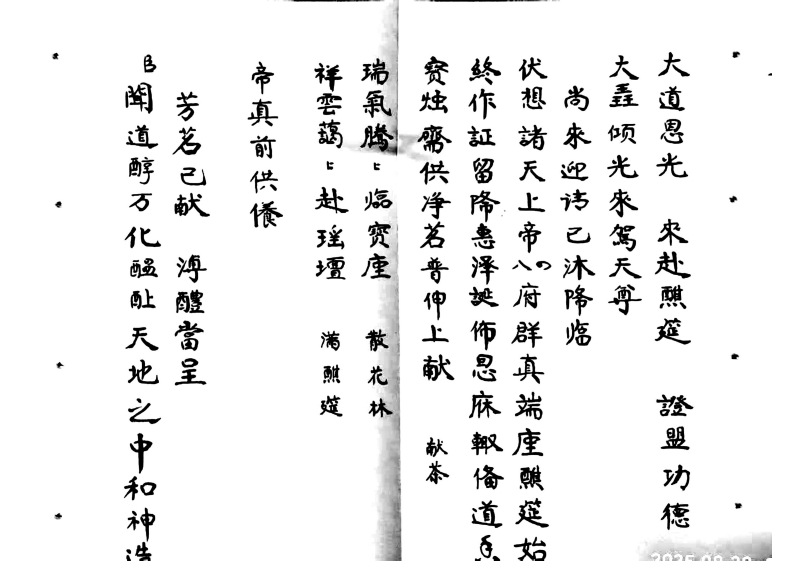 大道恩光 來赴醮筵 證盟功德
大羣傾光來駕天尊
尚來迎请已沐降临
伏想諸天上帝八四府群真端座醮筵始
終作証留降惠泽诞佈恩庥輙俻道
宝烛齋供净茗普伸上献 献茶
瑞氣騰〻临宝座 散花林
祥雲藹〻赴瑶壇 满醮筵
帝真前供養
芳茗已献 溥醴當呈
聞道醇万化醖酿天地之中和神造